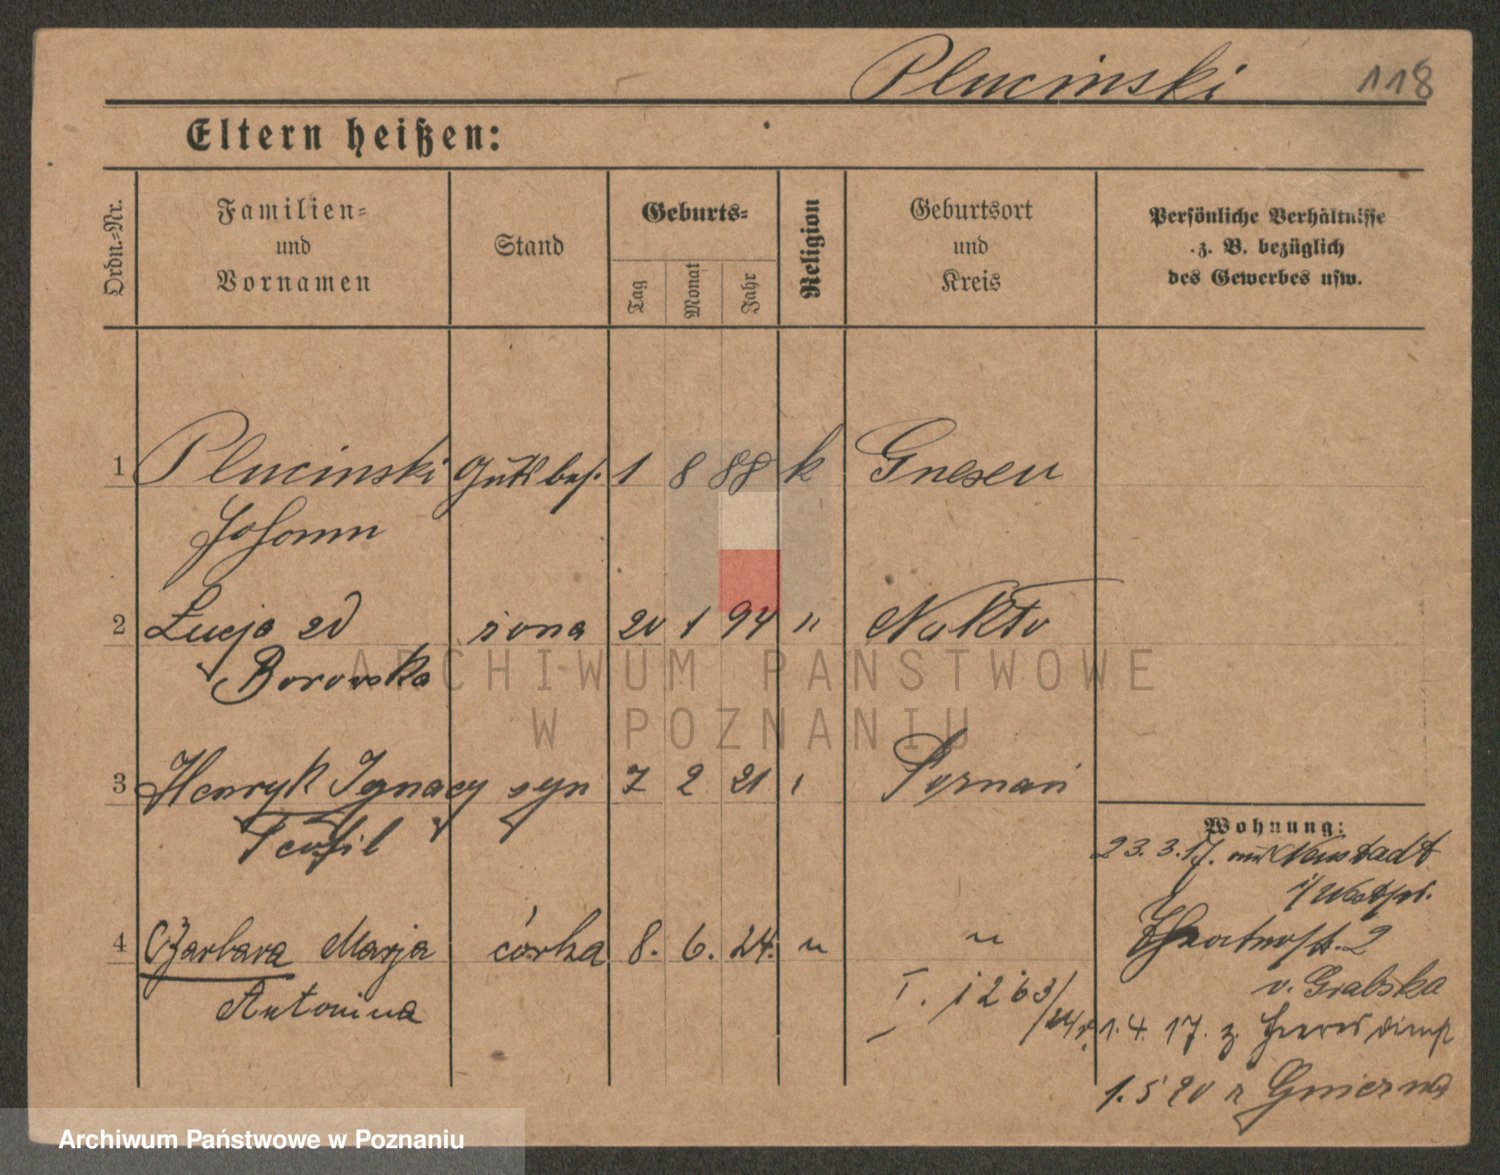 Plucinski 118
Eltern heißen:
Ordn.=Nr.
Familien=
und
Vornamen
Stand
Geburts=
Tag
Monat
Jahr
Religion
Geburtsort
und
Kreis
Persönliche Verhältnisse
z. B. bezüglich
des Gewerbes usw.
1 Plucinski Gutsbes. 1 8 88 k Gnesen
Johann
2 Lucja zd żona 20 1 94 " Nakło
Borowska
3 Henryk Ignacy syn 7 2 21 Poznań
Teofil
4 Barbara Marja córka 8. 6. 24. " "
Antonina
I. 1263/24
Wohnung:
23.3.17. aus Neustadt
i/Westpr.
2
v. Grabska
1.4.17. z. Heeresdienst
1.5 20 z Gniezna
ARCHIWUM PAŃSTWOWE
W POZNANIU
Archiwum Państwowe w Poznaniu